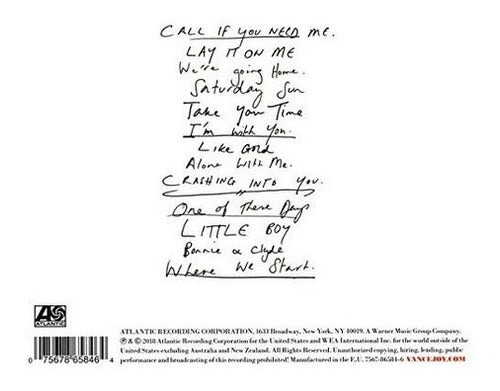 CALL IF YOU NEED ME.
LAY IT ON ME
We're going Home.
Saturday Sun
Take Your Time
I'm with You.
LIKE GOLD
Alone With Me.
CRASHING INTO You.
One of These Days
LITTLE BOY
Bonnie & Clyde
Where We Start.
ATLANTIC
0 75678 65846 4
ATLANTIC RECORDING CORPORATION, 1633 Broadway, New York, NY 10019. A Warner Music Group Company.
℗ & © 2018 Atlantic Recording Corporation for the United States and WEA International Inc. for the world outside of the
United States excluding Australia and New Zealand. All Rights Reserved. Unauthorized copying, hiring, lending, public
performance and broadcasting of this recording prohibited. Made in the E.U. 7567-86584-6 VANCEJOY.COM